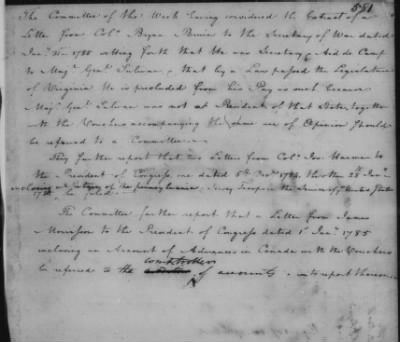 551
The Committee of the Week having considered the Extract of a
Letter from Col.º Bryan to the Secretary of War dated
Jan.y 1785 setting forth that he was Secretary & Aid de Camp
to Maj.r Gen.l &, that by a Law passed the Legislature
of Virginia He is precluded from his Pay as such because
Maj.r Gen.l was not a Resident of that State, together
with the Vouchers accompanying the same are of Opinion should
be referred to a Committee.
They further report that two Letters from Col.º Jos: Harmar to
the President of Congress, one dated 5th Dec.r 1784, the other
inclosing a of the Pennsylvania Troops in the Service of y.e United States
be filed
The Committee further report that a Letter from James
Morrison to the President of Congress dated 1st Jan.y 1785
inclosing an Account of Advances in Canada with the Vouchers
comptroller
be referred to the of accounts to report thereon